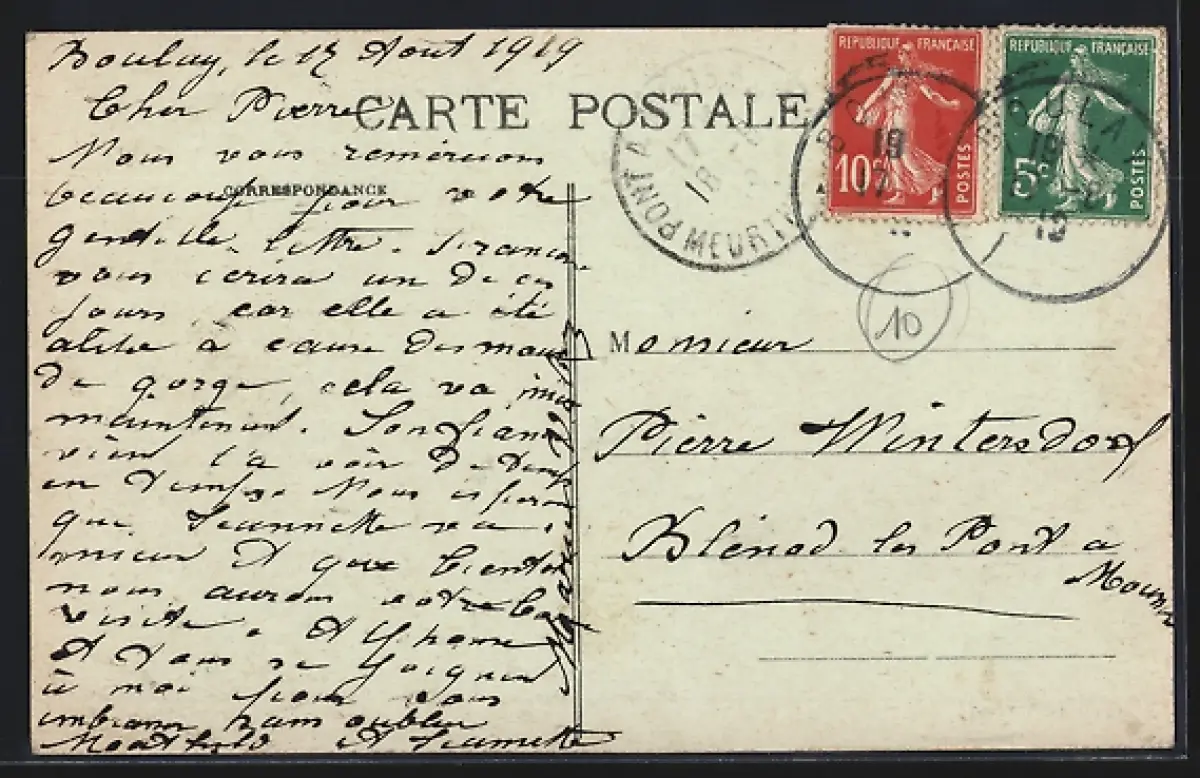 Boulay, le 17 Août 1919
Cher Pierre
CARTE POSTALE
Nous vous remercions
CORRESPONDANCE
beaucoup pour votre
gentille lettre.
vous écrira un de ces
jours car elle a été
à cause des maux
de gorge, cela va
maintenant. Son
vient la voir de temps
en temps. Nous espérons
que Jeannette va
mieux et que bientôt
nous aurons votre
visite. Alphonse
et vous se joignent
à moi pour vous
embrasser sans oublier
et Jeannette
REPUBLIQUE FRANÇAISE
10c
POSTES
REPUBLIQUE FRANÇAISE
5c
POSTES
BOULA
19
17
19
PONT A
MEURT
17
18
10
Monsieur
Pierre Wintersdorf
Blénod les Pont a
Mousson